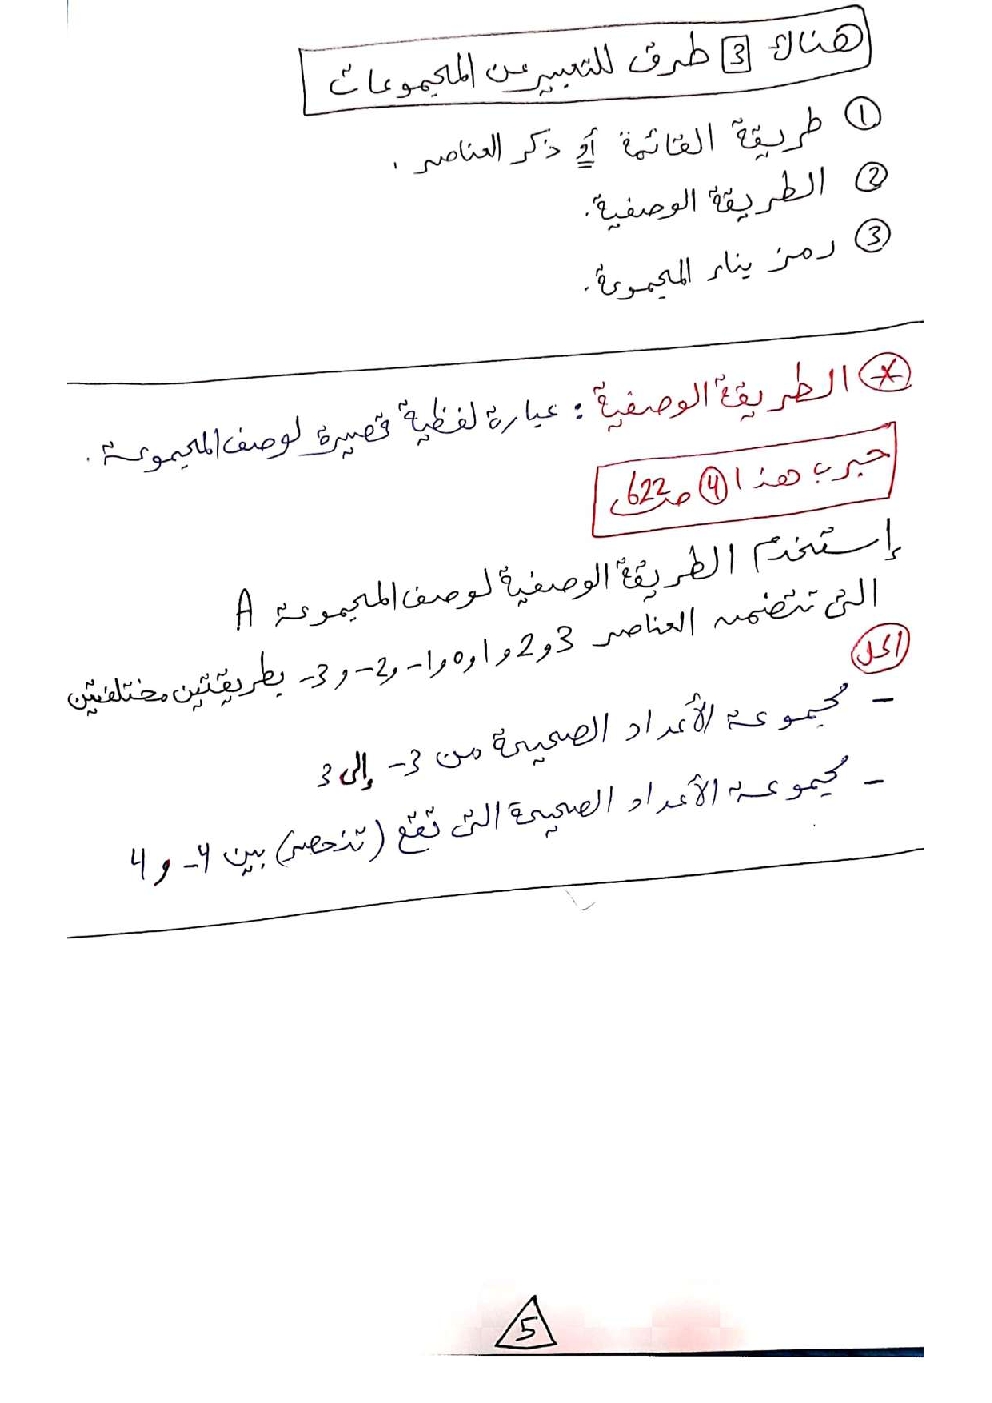 هناك 3 طرق للتعبير عن المجموعات
① طريقة القائمة أو ذكر العناصر .
② الطريقة الوصفية .
③ رمز بناء المجموعة .
* الطريقة الوصفية : عبارة لفظية قصيرة لوصف المجموعة .
جرب هذا ④ صـ 622
إستخدم الطريقة الوصفية لوصف المجموعة A
التى تتضمن العناصر 3 و 2 و 1 و 0 و 1- و 2- و 3- بطريقتين مختلفتين
الحل
- مجموعة الأعداد الصحيحة من 3- إلى 3
- مجموعة الأعداد الصحيحة التى تقع (تنحصر) بين 4- و 4
5